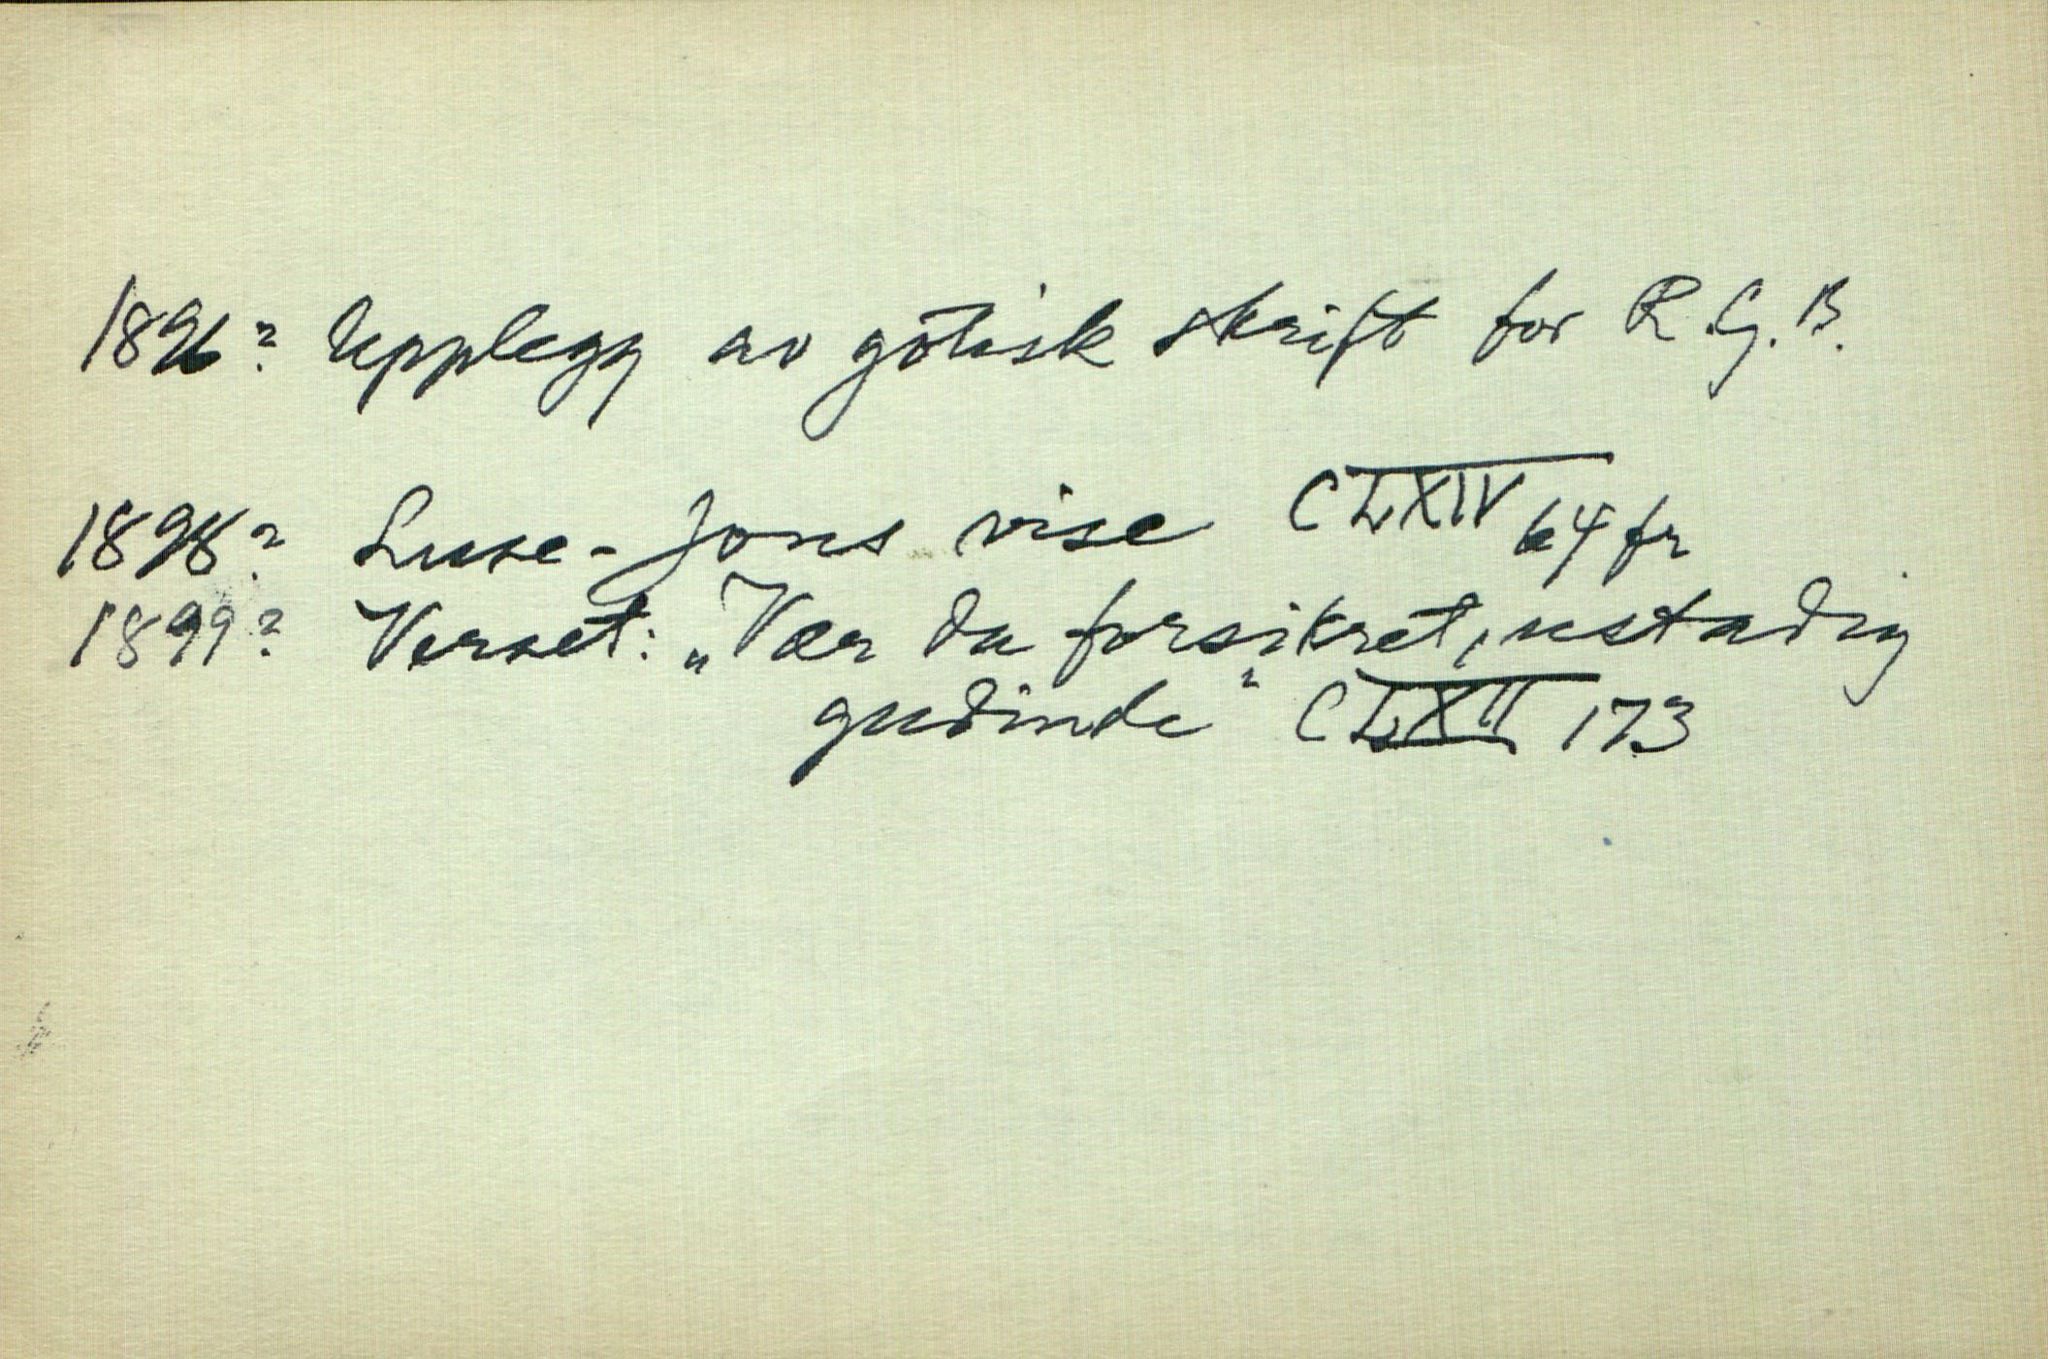 1896? Upplegg av gotisk skrift for R.G.B.
1898? Luse-Jons vise CLXIV 64 fr
1899? Verset: „Vær du forsikret, ustadig
gudinde" CLXII 173